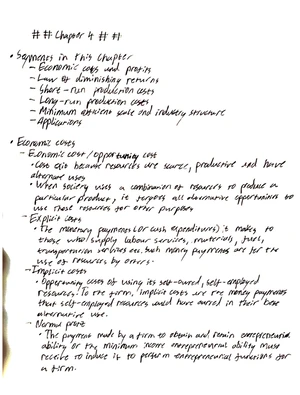 ## Chapter 4 ##
• Segments in this chapter
– Economic costs and profits
– Law of diminishing returns
– Short-run production costs
– Long-run production costs
– Minimum efficient scale and industry structure
– Applications
• Economic costs
– Economic cost / opportunity cost
• Cost exist because resources are scarce, productive and have
alternate uses
• When society uses a combination of resources to produce a
particular product, it forgoes all alternative opportunities to
use those resources for other purposes
– Explicit costs
• The monetary payments (or cash expenditures) it makes to
those who supply labour services, materials, fuel,
transportation services etc. Such money payments are for the
use of resources by others
– Implicit costs
• Opportunity costs of using its self-owned, self-employed
resources. To the firm, implicit costs are the money payments
that self-employed resources could have earned in their best
alternative use.
– Normal profit
• The payment made by a firm to obtain and retain entrepreneurial
ability or the minimum income entrepreneurial ability must
receive to induce it to perform entrepreneurial functions for
a firm.